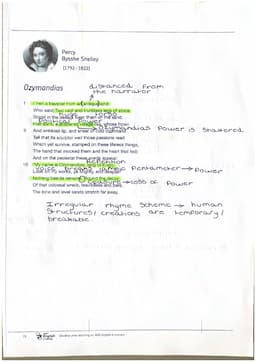 Percy
Bysshe Shelley
(1792 - 1822)
Ozymandias
distanced from
the narrator
I met a traveller from an antique land
Who said: Two vast and trunkless legs of stone
Stand in the desert. Near them on the sand,
Political Power
Half sunk, a shattered visage lies, whose frown
Ozymandias Power is shattered
And wrinkled lip, and sneer of cold command
Tell that its sculptor well those passions read
Which yet survive, stamped on these lifeless things,
The hand that mocked them and the heart that fed;
And on the pedestal these words appear:
"My name is Ozymandias,
breaks iambic Pentameter → Power
Look on my works, ye Mighty, and despair!"
Nothing beside remains. Round the decay
→ loss of Power
Of that colossal wreck, boundless and bare,
The lone and level sands stretch far away.
Irregular rhyme scheme → human
Structures/ creations are temporary/
breakable.